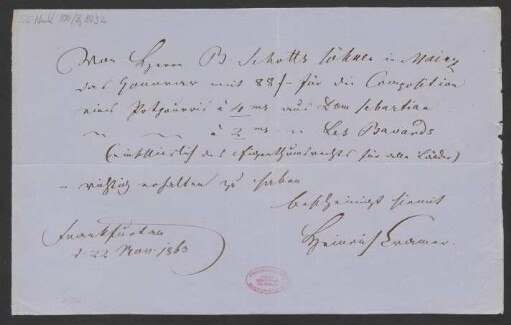 Von Herrn B. Schotts Söhne in Mainz
das Honorar mit 88f – für die Composition
eines Potpourris à 4 ms aus Dom Sebastian
à 2 ms " Les Bavards
(einschließlich des Eigenthumsrechts für alle Länder)
richtig erhalten zu haben
bescheinigt hiermit
Heinrich Cramer.
Frankfurt a/m
d. 22 Nov. 1863